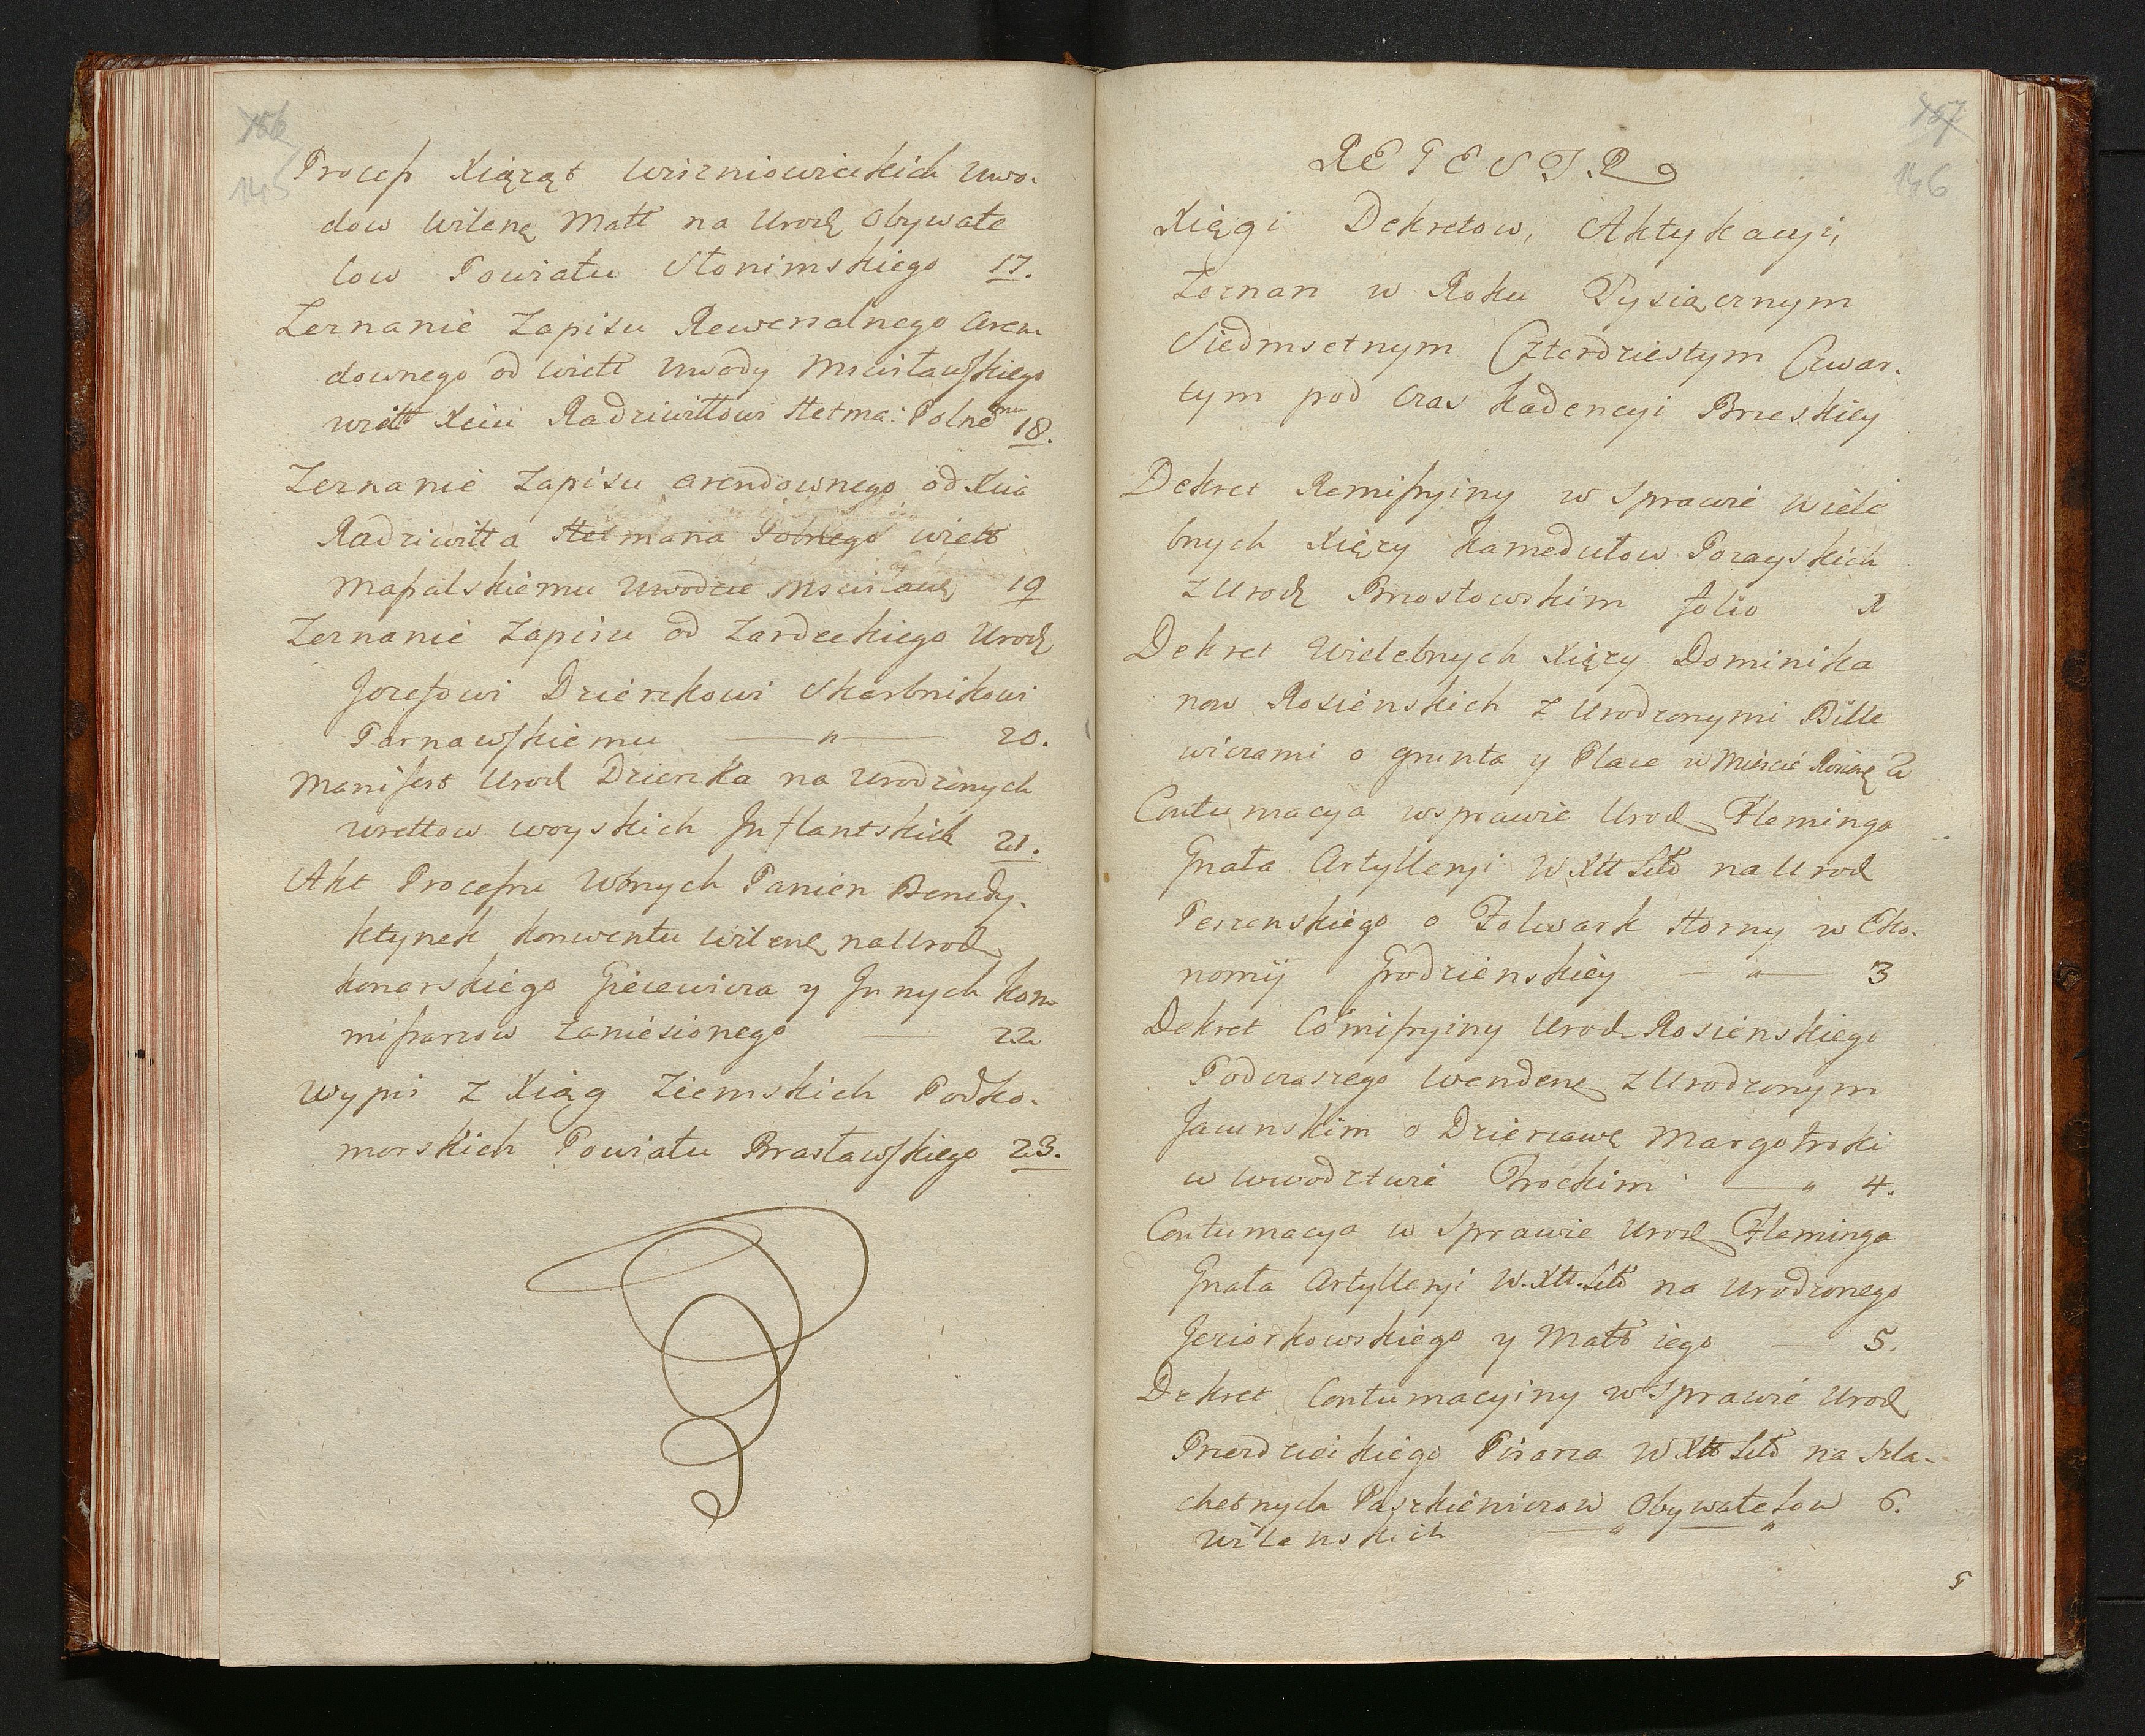 156
145
Process Xiążąt Wiszniowieckich Uwo-
dow Wileńę Małł na Urodź Obywate
low Powiatu Słonimskiego 17.
Zeznanie Zapisu Rewersalnego Aren-
downego od Wiell Uwody Mscisławskiego
Wiell Xciu Radziwiłłowi Hetma: Polne mu 18.
Zeznanie Zapisu arendownego od Xcia
Radziwiłła Hetmana Polnego wiell
Massalskiemu Uwodzie Mscisławę 19
Zeznanie Zapisu od Zardeckiego Urodź
Jozefowi Dzierzkowi Skarbnikowi
Parnawskiemu — " — 20.
Manifest Urodź Dzierzka na Urodzonych
woyskich Inflantskich 21.
Akt Processu Wbnych Panien Benedy-
ktynek Konwentu Wilenę na Urodź
Konarskiego Giecewicza y Jnnych Kom-
missarzow Zaniesionego — 22
Wypis z Xiąg Ziemskich Podko-
morskich Powiatu Brasławskiego 23.
157
146
REGESTR
Xięgi Dekretow, Aktykacyi,
Zeznan w Roku Tysiącznym
Siedmsetnym Czterdziestym Czwar-
tym pod Czas Kadencyi Brzeskiey
Dekret Remissyiny w Sprawie Wiele
bnych Xięży Kamedułow Pozayskich
z Urodź Brzostowskim folio 1
Dekret Wielebnych Xięży Dominika
now Rosienskich z Urodzonymi Bille
wiczami o grunta y Place w Miescie Rosienę 2
Contumacya wsprawie Urodź Fleminga
Gnała Artylleryi W. Xtt Litt na Urodź
o Folwark Horny w Eko-
nomij Grodzienskiey — " — 3
Dekret Comissyiny Urodź Rosienskiego
Podczaszego Wendenę z Urodzonym
Jacunskim o Dzierzawę Margotroki
w Wwodztwie Trockim — " 4.
Contumacya w Sprawie Urodź Fleminga
Gnała Artylleryi W. Xtt. Litt na Urodzonego
Jeziorkowskiego y Małł iego — 5.
Dekret Contumacyiny w Sprawie Urodź
Przezdzieckiego Pisarza W Xtt Litt na Szla-
chetnych Paszkiewiczow Obywatelow 6.
Wilenskich — " — "